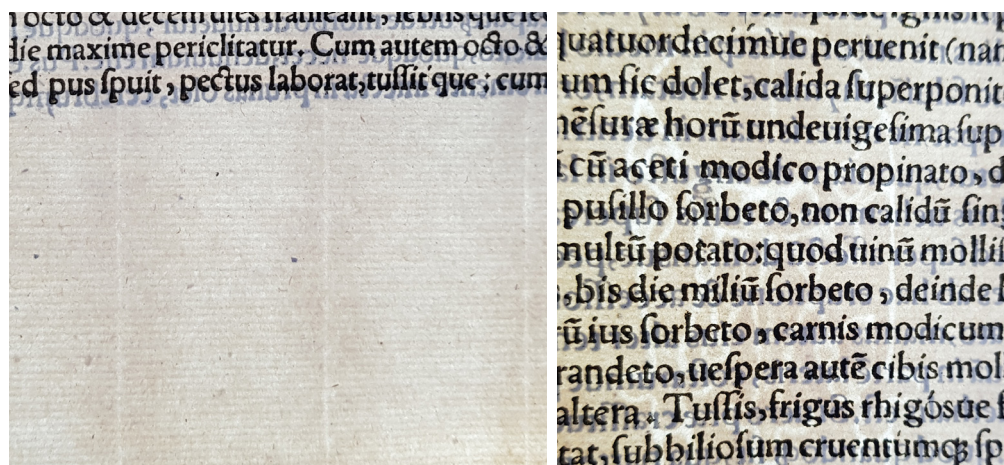 octo & decem dies
die maxime periclitatur. Cum autem octo &
ed pus ſpuit, pectus laborat, tuſſit que: cum
quatuordecimue peruenit (nam
um ſic dolet, calida ſuperponit
nẽſuræ horũ undeuigeſima ſup
cũ aceti modico propinato,
puſillo ſorbeto, non calidũ ſin
multũ potato: quod uinũ molli
, bis die miliũ ſorbeto, deinde
rũ ius ſorbeto, carnis modicum
randeto, ueſpera autẽ cibis mol
altera. Tuſſis, frigus rhigóſue
tat, ſubbilioſum cruentúmq; ſp